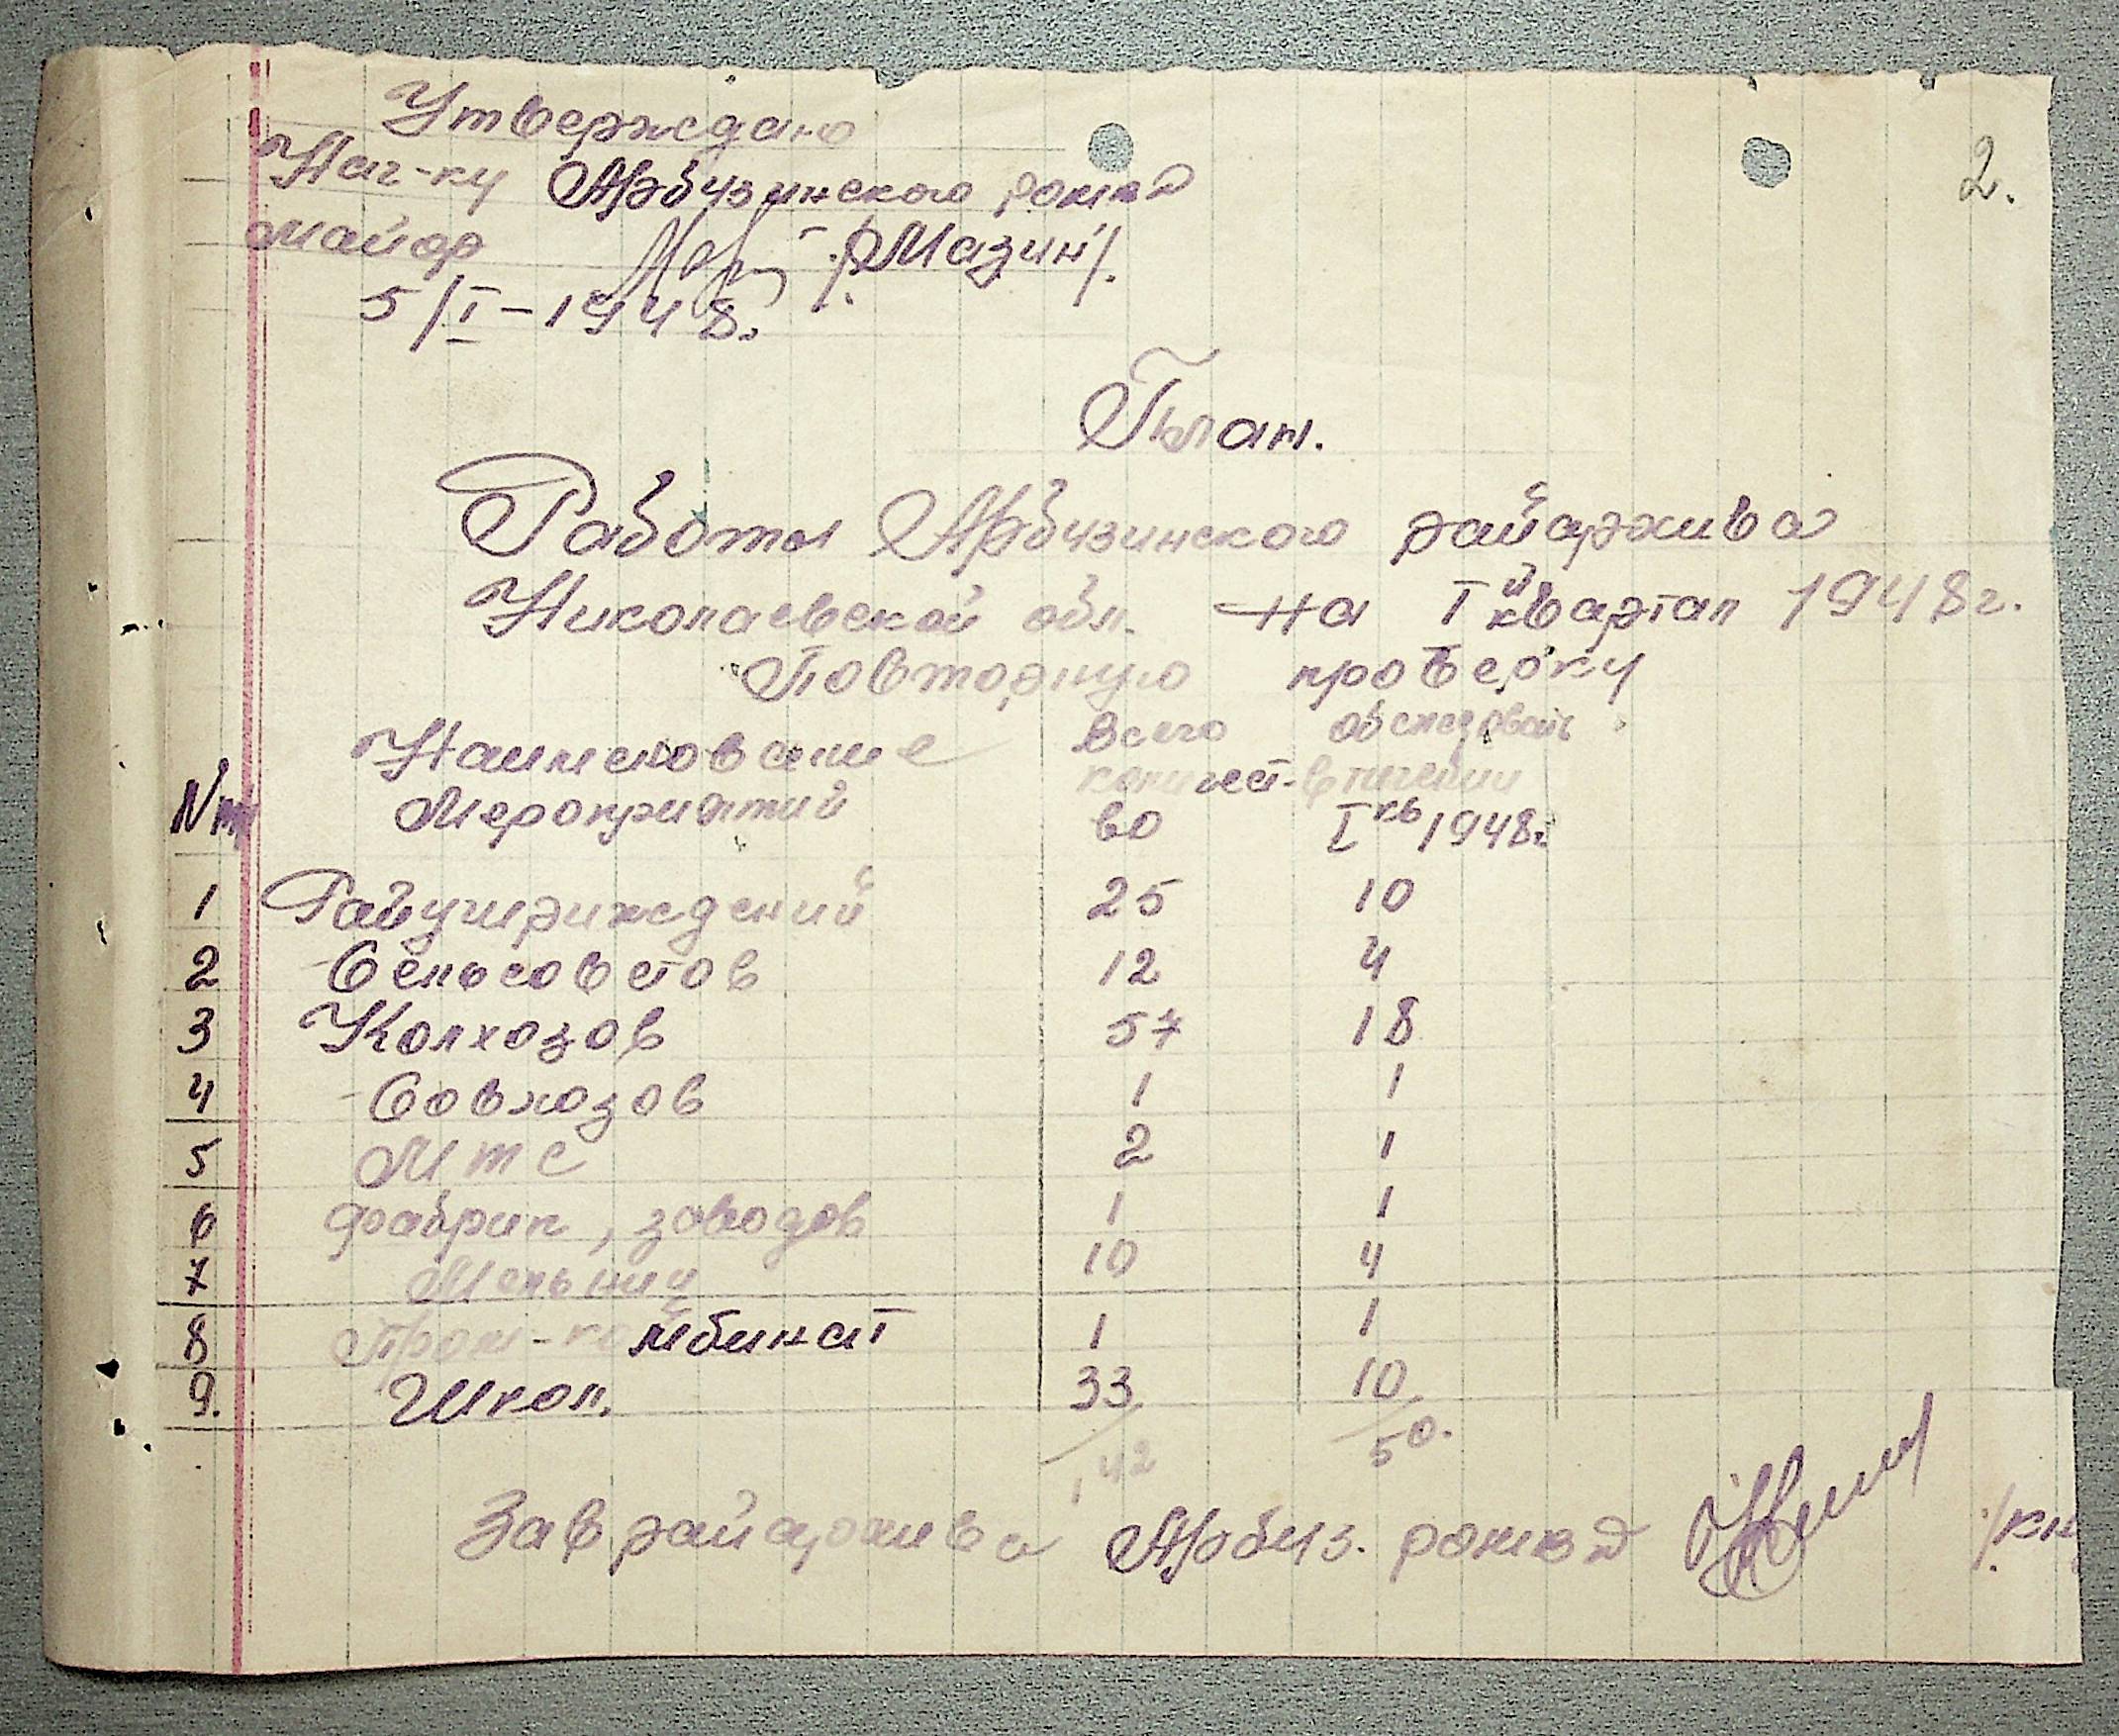 2.
Утверждаю
Нач-ку Арбузинского ромвд
майор /Мазин/.
5/I-1948.
План.
Работы Арбузинского райархива
Николаевской обл. на I й квартал 1948г.
Повторную проверку
Nпп Наименование Мероприятий Всего количест-во обследовать в течении I кв 1948г
1 Райучриждений 25 10
2 Сельсоветов 12 4
3 Колхозов 57 18
4 Совхозов 1 1
5 Мтс 2 1
6 Фабрик, заводов 1 1
7 Мельниц 10 4
8 Пром-комбинат 1 1
9. Школ. 33 10
142 50.
Зав райархива Арбуз. ромвд /Кн